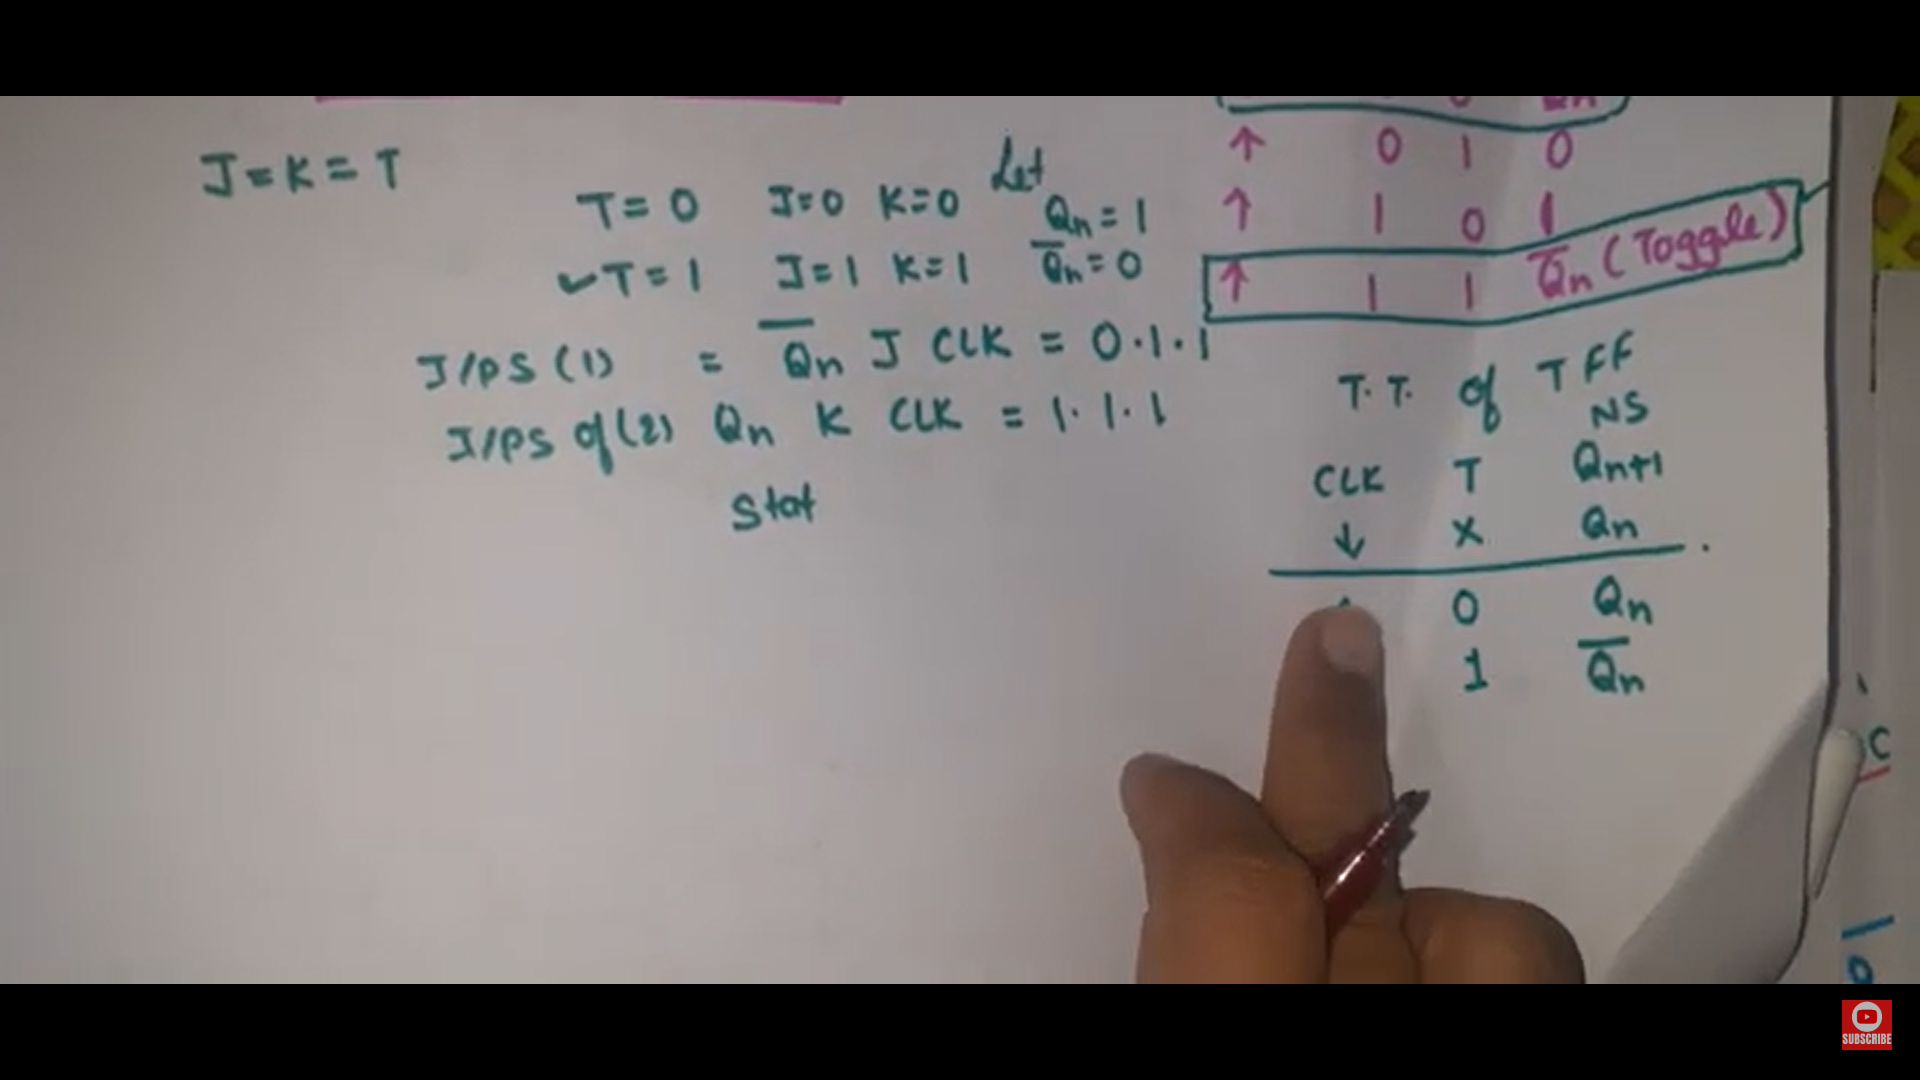 J = K = T
T = 0 J=0 K=0 Let Qn = 1
✓T = 1 J=1 K=1 Q̅n = 0
I/PS (1) = Q̅n J CLK = 0·1·1
I/PS of (2) Qn K CLK = 1·1·1
Stat
Qn
↑ 0 1 0
↑ 1 0 1
↑ 1 1 Q̅n (Toggle)
T.T. of T FF
NS
CLK T Qn+1
↓ X Qn
0 Qn
1 Q̅n
C
SUBSCRIBE